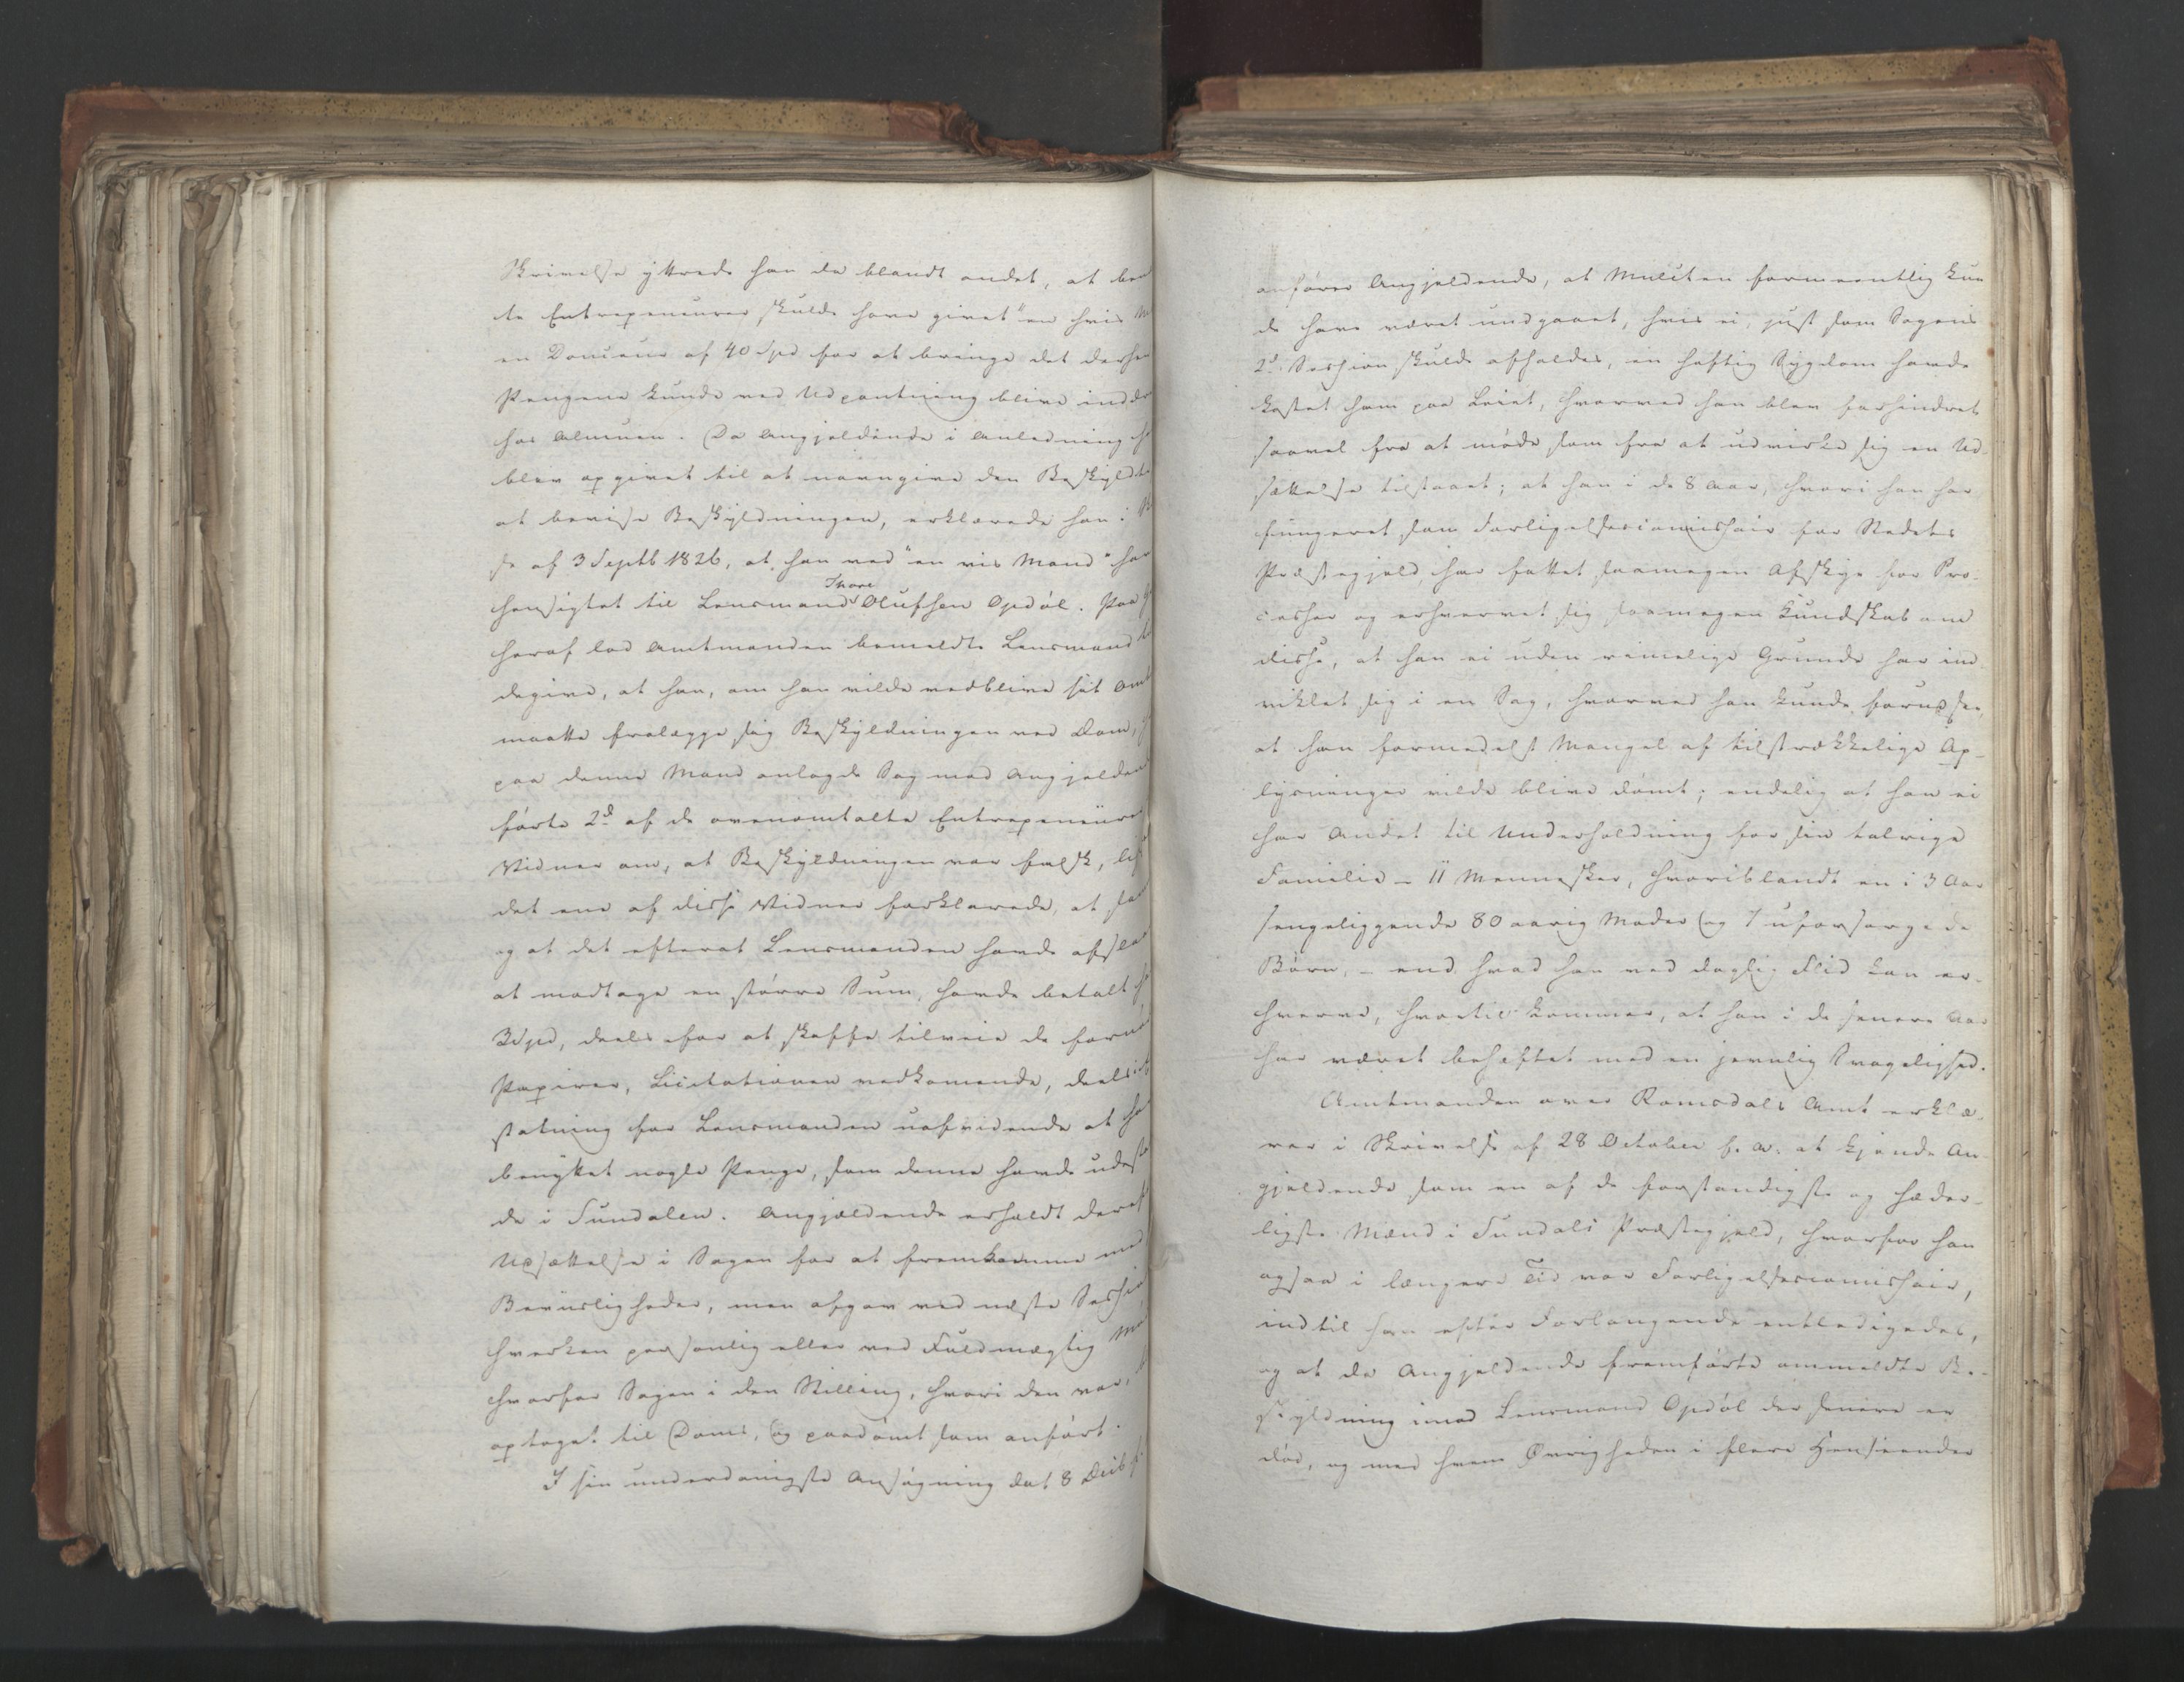 Skrivelse ÿttrede han da blandt andet, at
te Entrepeneurer skulde have givet "en hvis
en Douceur af 40 Spd for at bringe det
Pengene kunde ved Udpantning blive
hos Almuen. Da Angjeldende i Anledning
blev opgivet til at navngive den
at bevise Beskÿldningen, erklærede han i
se af 3 Septb 1826, at han med "en vis Mand"
hensigtet til Lensmand Thore Olufsen Opdøl. Paa
heraf lod Amtmanden bemeldte Lensmand
degive, at han, om han vilde vedblive sit
maatte fralægge sig Beskÿldningen ved Dom,
paa denne Mand anlagde Sag mod
førte 2de af de ovenomtalte
Vidner om, at Beskÿldningen var falsk,
det ene af disse Vidner forklarede, at
og at det efterat Lensmanden havde
at modtage en større Sum, havde betalt
3 Spd, deels for at skaffe tilveie de
Papirer, Licitationen vedkomende,
statning for Lensmanden uafvidende at
benyttet nogle Penge, som denne havde
de i Sundalen. Angjældende erholdt
Udsættelse i Sagen for at fremkomme
Beviisligheder, men afgav ved næste
hverken personlig eller ved Fuldmægtig
hvorfor Sagen i den Stilling, hvori den var,
optaget til Doms, og paadømt som anført.
I sin underdanigste Ansøgning dat 8
anfører Angjeldende, at Mulcten formeentlig kun
de have været undgaaet, hvis ei, just som Sagens
2d Session skulde afholdes, en heftig Sygdom havde
kastet ham paa Leiet, hvorved han blev forhindret
saavel fra at møde som fra at udvirke sig en Ud-
sættelse tilstaaet; at han i de 8 Aar, hvori han har
fungeret som Forligelsescomissair for Stedets
Præstegjeld, har fattet saamegen Afskye for Pro-
cesser og erhvervet sig saamegen Kundskab om
disse, at han ei uden rimelige Grunde har ind
viklet sig i en Sag, hvorved han kunde forudsee,
at han formedelst Mangel af tilstrækkelige Op-
lysninger vilde blive dømt; endelig at han ei
har Andet til Underholdning for sin talrige
Familie - 11 Mennesker, hvoriblandt en i 3 Aar
sengeliggende 80 aarig Moder og 7 uforsørgede
Børn, - end hvad han ved daglig Flid kan er-
hverve, hvortil kommer, at han i de senere Aar
har været behæftet med en jevnlig Svagelighed.
Amtmanden over Romsdals Amt erklæ-
rer i Skrivelse af 28 October f. A. at kjende An-
gjeldende som en af de forstandigste og hæder-
ligste Mænd i Sundals Præstegjeld, hvorfor han
ogsaa i længere Tid var Forligelsescomissair,
indtil han efter Forlangende entledigedes,
og at da Angjeldende fremførte ommeldte Be-
skyldning imod Lensmand Opdøl der senere er
død, og med hvem Øvrigheden i flere Henseender